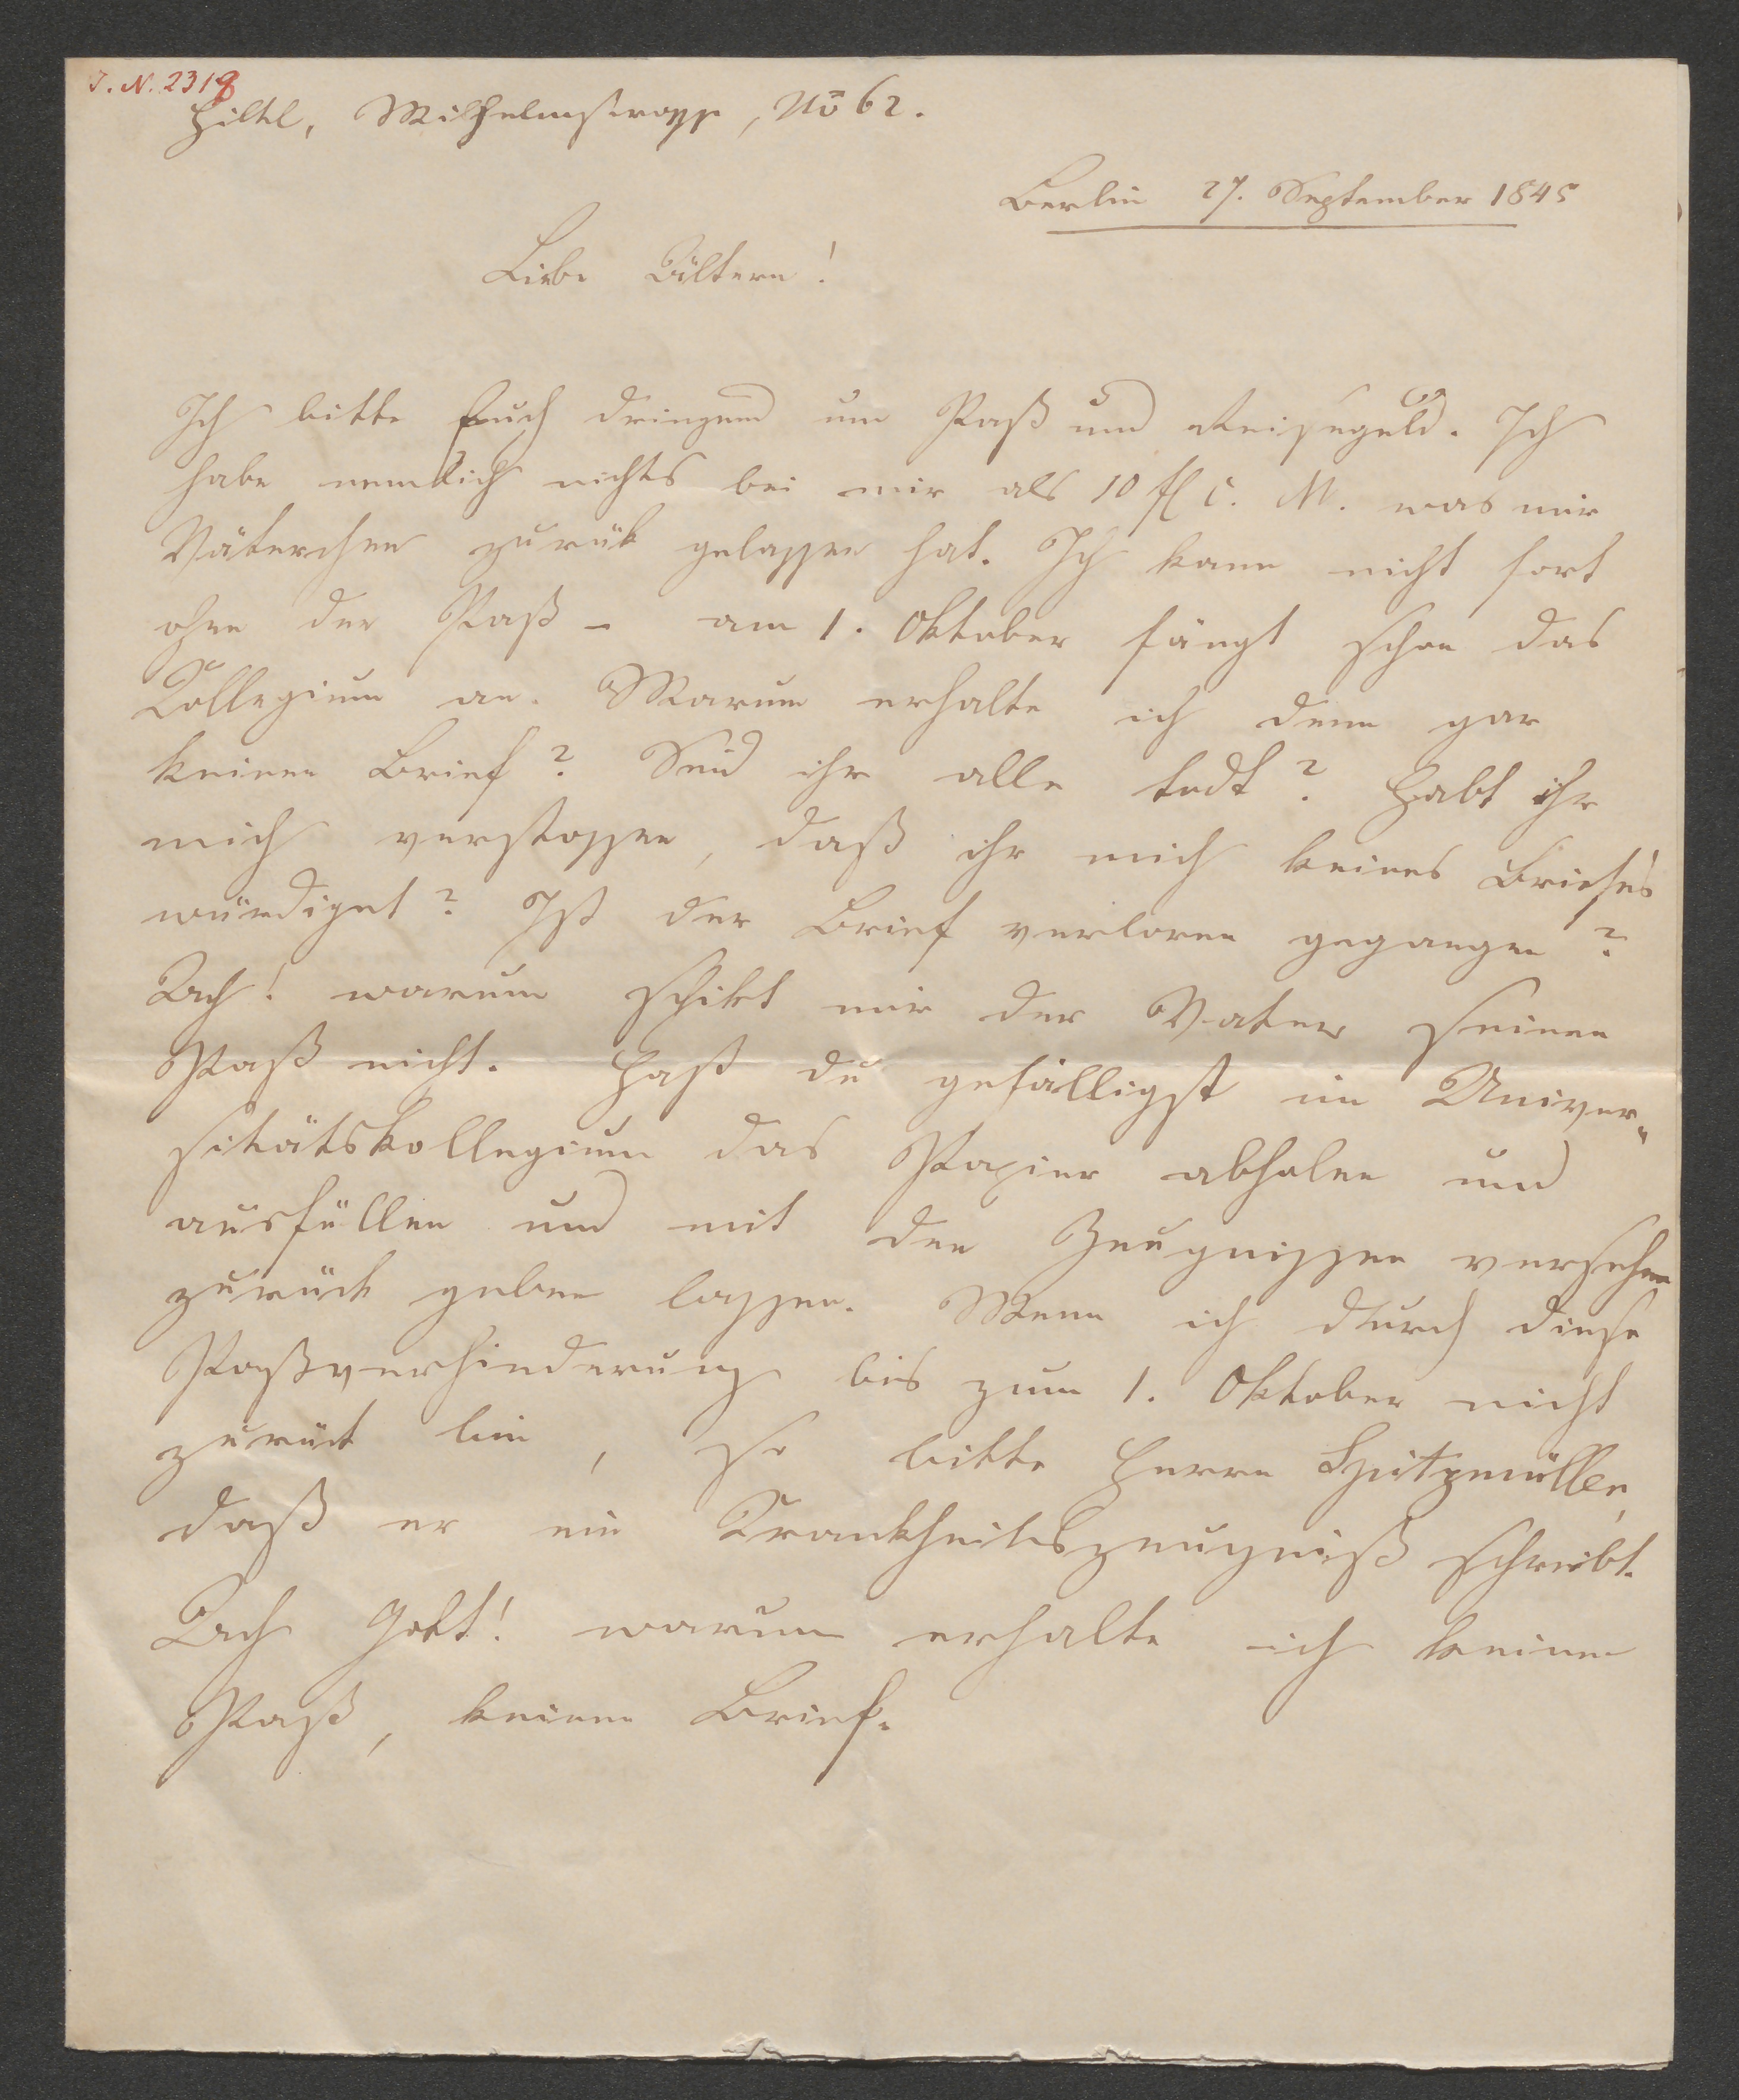 I. N. 2318
Hiltl, Wilhelmstrasse, No 62.
Berlin 27. September 1845
Liebe Ältern!
Ich bitte Euch dringend um Paß und Reisegeld. Ich
habe nemlich nichts bei mir als 10 fl C. M. was mir
Väterchen zurük gelassen hat. Ich kann nicht fort
ohne den Paß – am 1. Oktober fängt schon das
Collegium an. Warum erhalte ich denn gar
keinen Brief? Seid ihr alle todt? Habt ihr
mich verstossen, daß ihr mich keines Briefes
würdiget? Ist der Brief verloren gegangen?
Ach! warum schikt mir der Vater seinen
Paß nicht. Hast du gefälligst im Univer„
sitätskollegium das Papier abholen und
ausfüllen und mit den Zeugnissen versehen
zurück geben lassen. Wenn ich durch diese
Paßverhinderung bis zum 1. Oktober nicht
zurück bin, so bitte Herrn Spitzmüller,
daß er ein Krankheitszeugniß schreibt.
Ach Gott! warum erhalte ich keinen
Paß, keinen Brief.